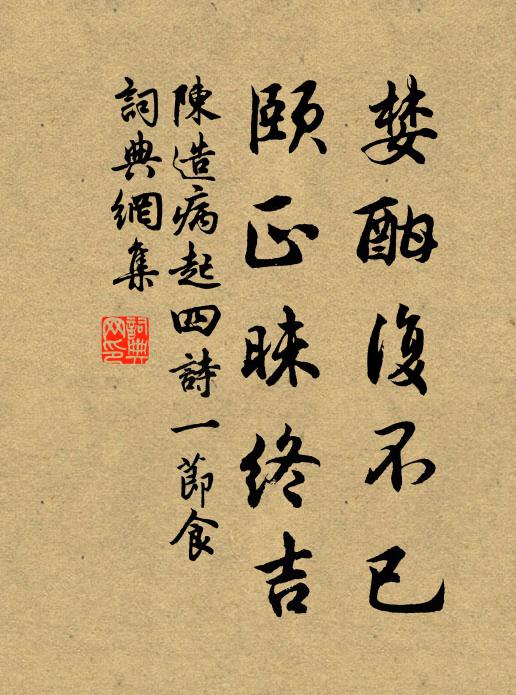 婪酣復不已
頤正昧終吉
陳造病起四詩一節食
詞典網集
詞典
网印